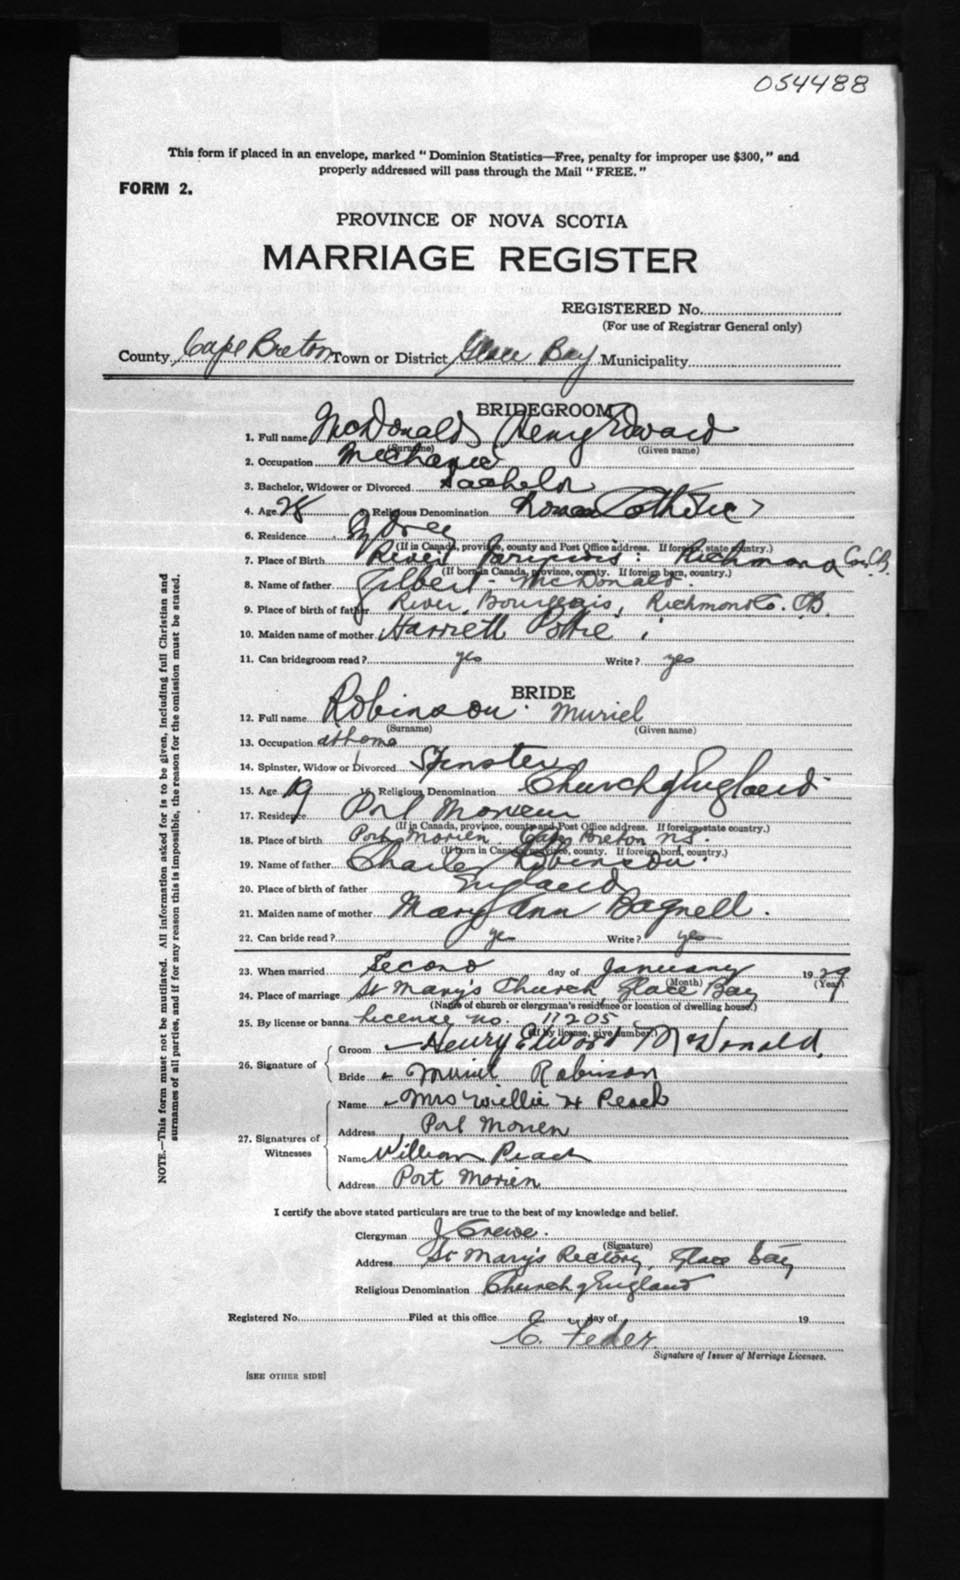 054488
This form if placed in an envelope, marked "Dominion Statistics—Free, penalty for improper use $300," and
properly addressed will pass through the Mail "FREE."
FORM 2.
PROVINCE OF NOVA SCOTIA
MARRIAGE REGISTER
REGISTERED No.
(For use of Registrar General only)
County Cape Breton Town or District Glace Bay Municipality
BRIDEGROOM
1. Full name McDonald Henry Edward
(Surname) (Given name)
2. Occupation Mechanic
3. Bachelor, Widower or Divorced Bachelor
4. Age 28 5. Religious Denomination Roman Catholic
6. Residence
(If in Canada, province, county and Post Office address. If foreign, state country.)
7. Place of Birth River Richmond Co. C.B.
(If born in Canada, province, county. If foreign born, country.)
8. Name of father Gilbert McDonald
9. Place of birth of father River Bourgeois, Richmond Co. C.B.
10. Maiden name of mother Harriett Pottie
11. Can bridegroom read? yes Write? yes
BRIDE
12. Full name Robinson Muriel
(Surname) (Given name)
13. Occupation at home
14. Spinster, Widow or Divorced Spinster
15. Age 19 16. Religious Denomination Church of England
17. Residence Port Morien
(If in Canada, province, county and Post Office address. If foreign state country.)
18. Place of birth Port Morien Cape Breton N.S.
(If born in Canada, province, county. If foreign born, country.)
19. Name of father Charles Robinson
20. Place of birth of father England
21. Maiden name of mother Mary Ann Bagnell.
22. Can bride read? yes Write? yes
23. When married Second day of January 1929
(Month) (Year)
24. Place of marriage St Mary's Church, Glace Bay
(Name of church or clergyman's residence or location of dwelling house.)
25. By license or banns License no. 11205
(If by license, give number.)
26. Signature of
Groom Henry Edward McDonald.
Bride Muriel Robinson
27. Signatures of Witnesses
Name Mrs Willie H Peach
Address Port Morien
Name William Peach
Address Port Morien
I certify the above stated particulars are true to the best of my knowledge and belief.
Clergyman J Crewe.
(Signature)
Address St Mary's Rectory, Glace Bay
Religious Denomination Church of England
Registered No. Filed at this office day of 19
E. Feder.
Signature of Issuer of Marriage Licenses.
[SEE OTHER SIDE]
NOTE.—This form must not be mutilated. All information asked for is to be given, including full Christian and
surnames of all parties, and if for any reason this is impossible, the reason for the omission must be stated.